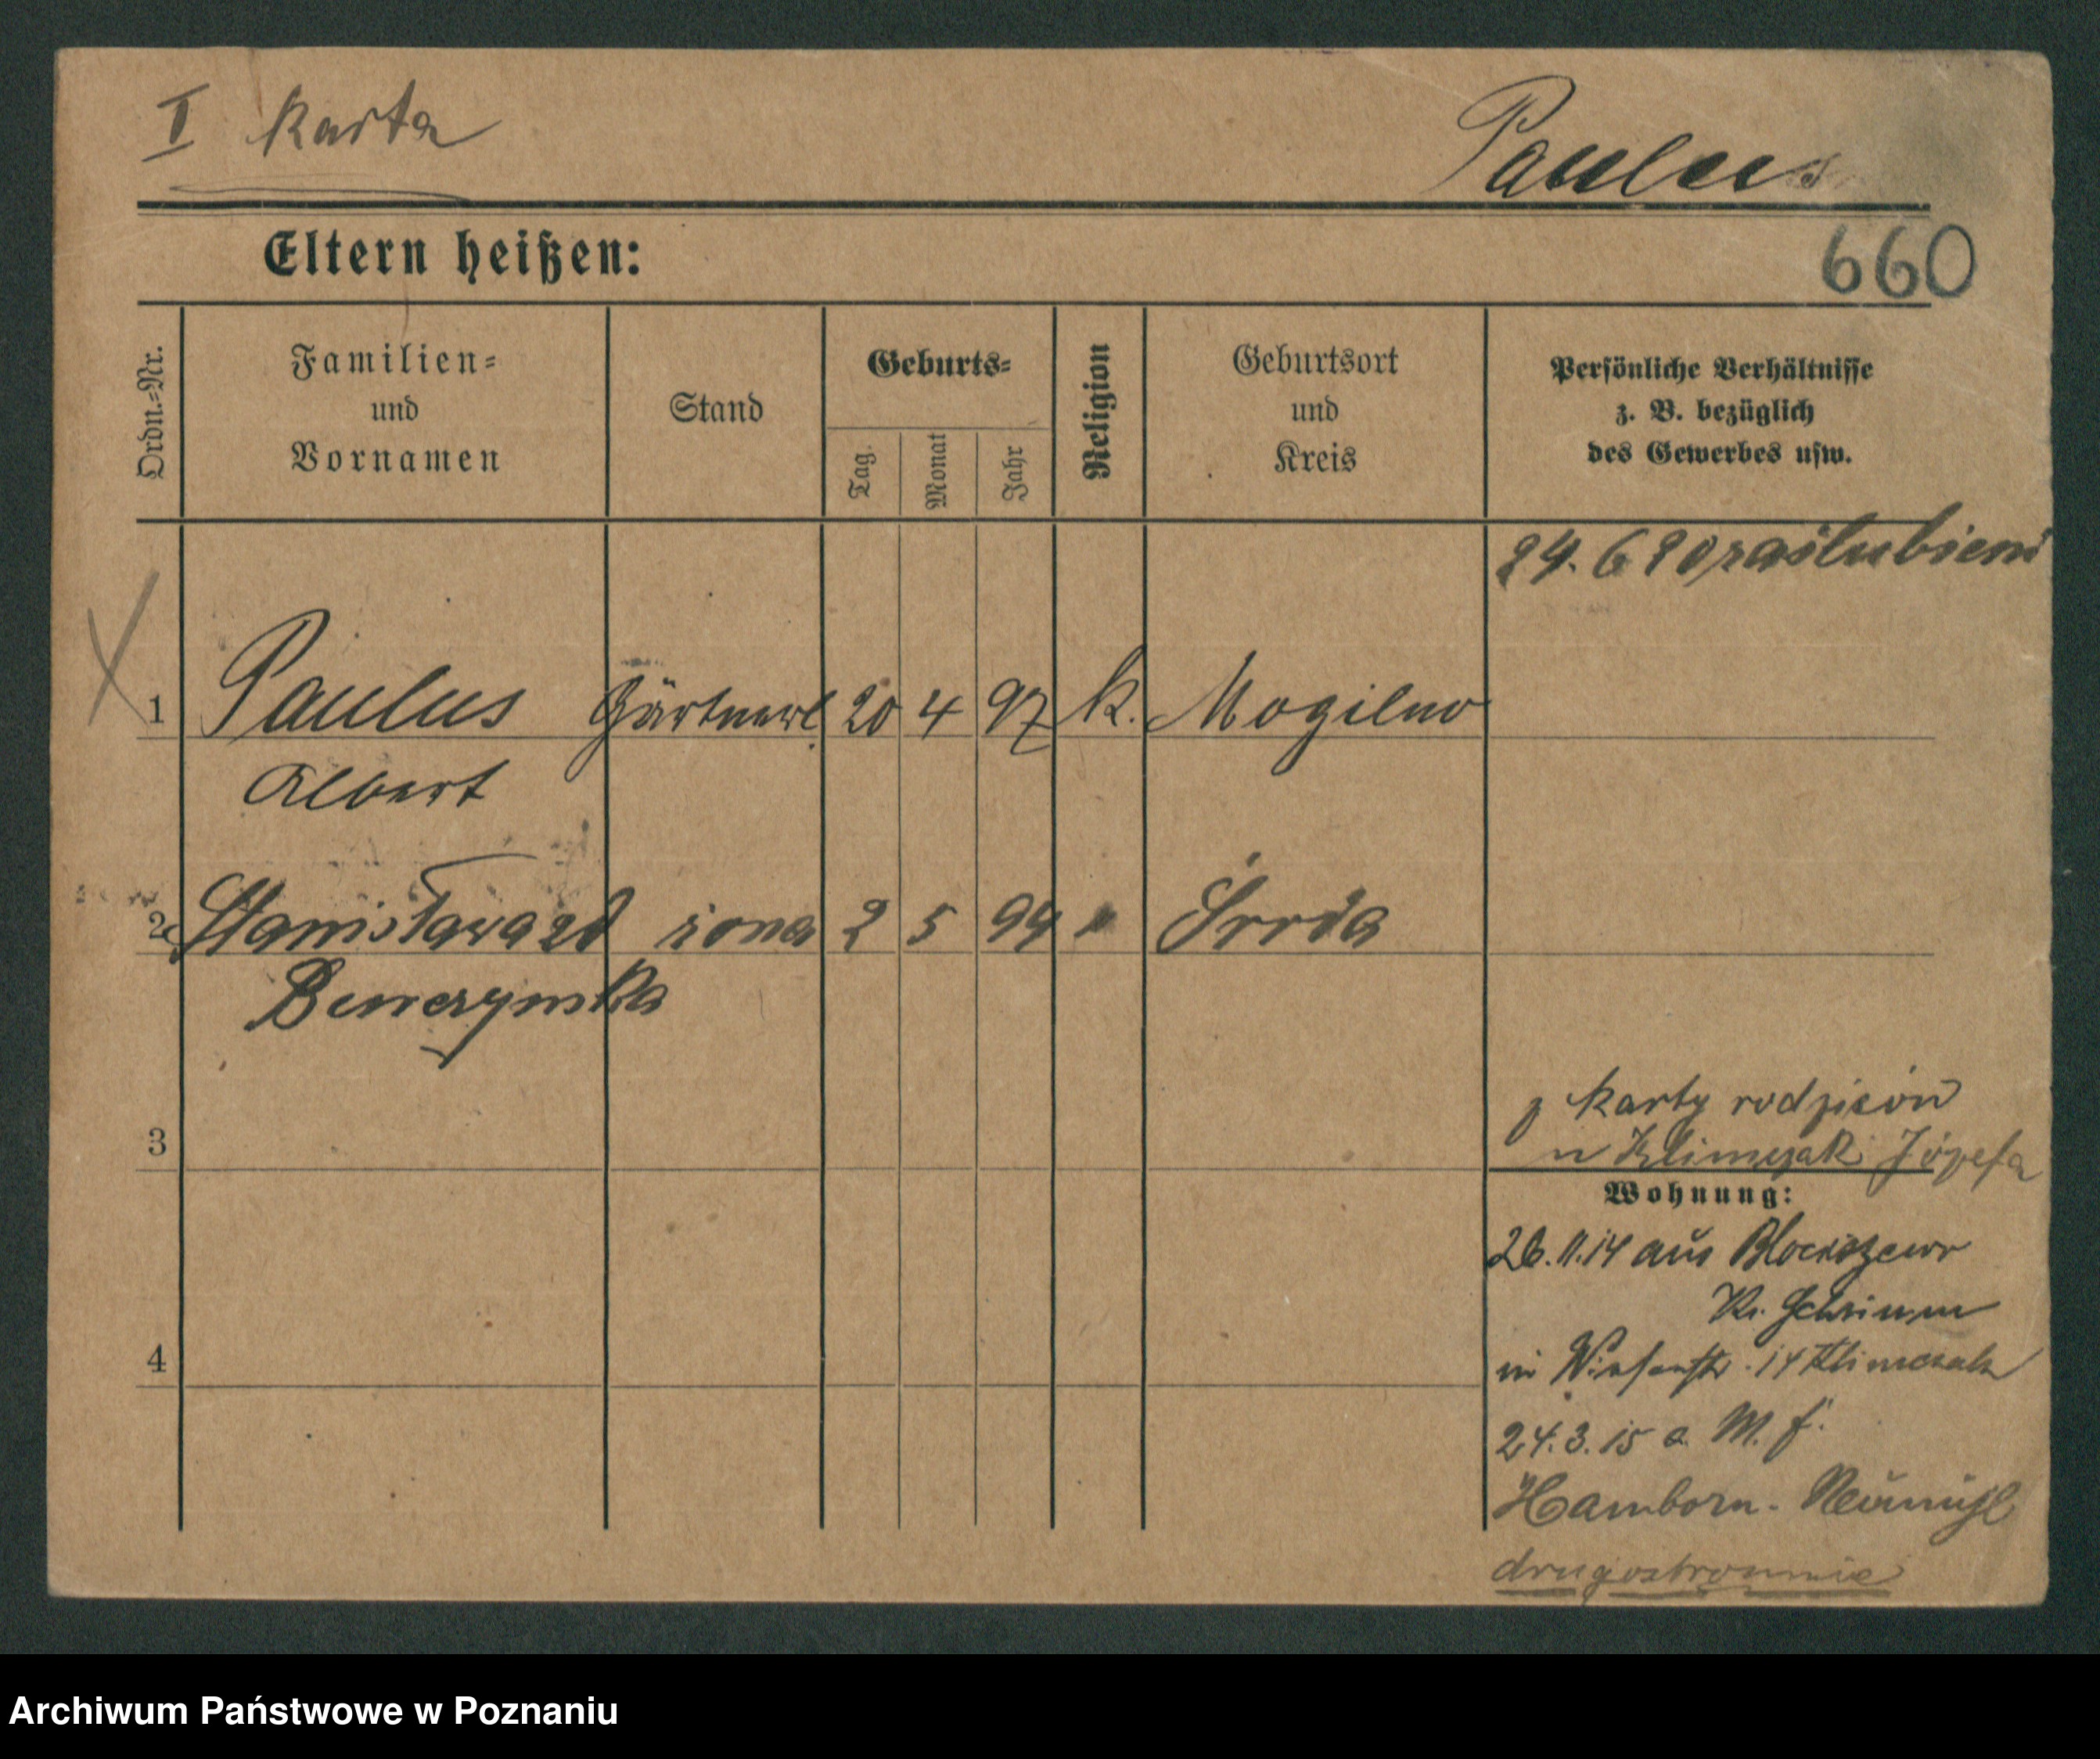 I karta
Paulus
660
Eltern heißen:
Ordn.-Nr.
Familien- und Vornamen
Stand
Geburts-
Tag.
Monat
Jahr
Religion
Geburtsort und Kreis
Persönliche Verhältnisse
z. B. bezüglich
des Gewerbes usw.
24. 6 20 zaślubieni
1 Paulus Gärtnerl. 20 4 97 k. Mogilno
Albert
2 Stanisława zd żona 2 5 99 " Środa
3
z karty rodziców
u Klimczak Józefa
Wohnung:
26.11.14 aus Blociszewo
Kr. Schrimm
in 14 Klimczak
24.3.15 a. M. f.
Hamborn-
4
drugostronnie
Archiwum Państwowe w Poznaniu